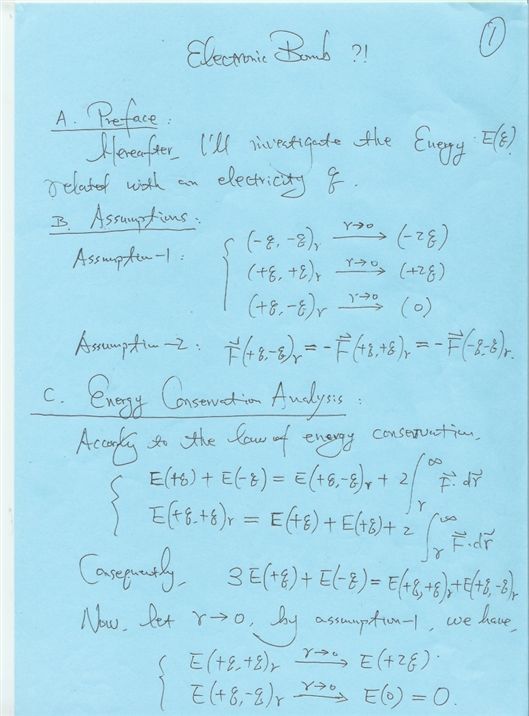 ①
Electronic Bomb ?!
A. Preface:
Hereafter, I'll investigate the Energy E(q)
related with an electricity q.
B. Assumptions:
Assumption-1: { (-q, -q)r —r→0→ (-2q)
(+q, +q)r —r→0→ (+2q)
(+q, -q)r —r→0→ (0)
Assumption-2: F⃗(+q,-q)r = -F⃗(+q,+q)r = -F⃗(-q,-q)r.
C. Energy Conservation Analysis:
Accordly to the law of energy conservation,
{ E(+q) + E(-q) = E(+q,-q)r + 2∫r^∞ F⃗·dr⃗
E(+q,+q)r = E(+q) + E(+q) + 2∫r^∞ F⃗·dr⃗
Consequently, 3E(+q) + E(-q) = E(+q,+q)r + E(+q,-q)r
Now, let r→0, by assumption-1, we have,
{ E(+q,+q)r —r→0→ E(+2q).
E(+q,-q)r —r→0→ E(0) = 0.